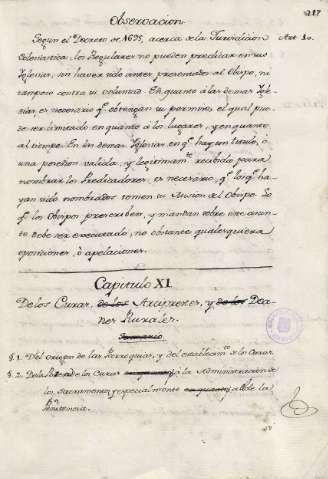 217
Observacion
Segun el Decreto de 1695, acerca de la Jurisdiccion Art. 10.
Eclesiastica los Regulares no pueden predicar en sus
Iglesias, sin haver sido antes presentados al Obispo, ni
tampoco contra su voluntad. En quanto à las demas Igle-
sias, es necesario qe obtengan su permiso, el qual pue-
de ser limitado en quanto à los lugares, y en quanto
al tiempo. En las demas Iglesias en qe hay un titulo, ò
una posesion valida, y legitimamte recibida para
nombrar los Predicadores, es necesario, qe los qe ha-
yan sido nombrados tomen su Mision del Obispo. Lo
qe los Obispos prescriben, y mandan sobre este asun-
to debe ser executado, no obstante qualesquiera
oposiciones, ò apelaciones.
Capitulo XI.
De los Curas, de los Arciprestes, y de los Dea-
nes Rurales.
Sumario.
§. 1. Del origen de las Parroquias, y del establecimto de los Curas.
§. 2. De los Curas à la Administracion de
los Sacramentos y especialmente al de la
Penitencia.